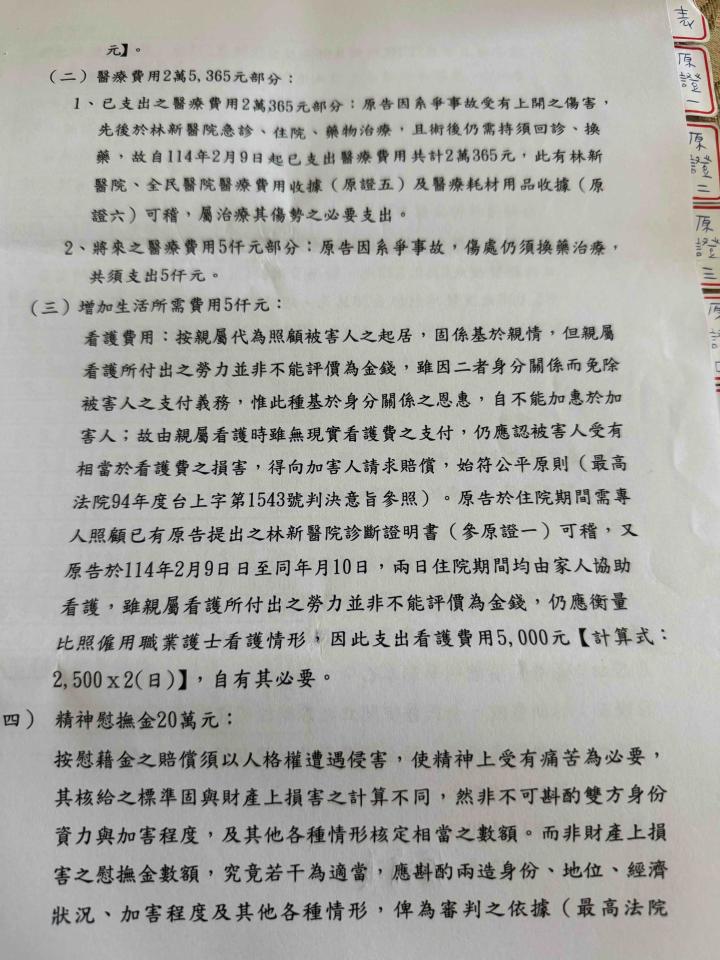 元】。
(二)醫療費用2萬5,365元部分:
1、已支出之醫療費用2萬365元部分:原告因系爭事故受有上開之傷害,
先後於林新醫院急診、住院、藥物治療,且術後仍需持須回診、換
藥,故自114年2月9日起已支出醫療費用共計2萬365元,此有林新
醫院、全民醫院醫療費用收據(原證五)及醫療耗材用品收據(原
證六)可稽,屬治療其傷勢之必要支出。
2、將來之醫療費用5仟元部分:原告因系爭事故,傷處仍須換藥治療,
共須支出5仟元。
(三)增加生活所需費用5仟元:
看護費用:按親屬代為照顧被害人之起居,固係基於親情,但親屬
看護所付出之勞力並非不能評價為金錢,雖因二者身分關係而免除
被害人之支付義務,惟此種基於身分關係之恩惠,自不能加惠於加
害人;故由親屬看護時雖無現實看護費之支付,仍應認被害人受有
相當於看護費之損害,得向加害人請求賠償,始符公平原則(最高
法院94年度台上字第1543號判決意旨參照)。原告於住院期間需專
人照顧已有原告提出之林新醫院診斷證明書(參原證一)可稽,又
原告於114年2月9日日至同年月10日,兩日住院期間均由家人協助
看護,雖親屬看護所付出之勞力並非不能評價為金錢,仍應衡量
比照僱用職業護士看護情形,因此支出看護費用5,000元【計算式:
2,500x2(日)】,自有其必要。
四) 精神慰撫金20萬元:
按慰藉金之賠償須以人格權遭遇侵害,使精神上受有痛苦為必要,
其核給之標準固與財產上損害之計算不同,然非不可斟酌雙方身份
資力與加害程度,及其他各種情形核定相當之數額。而非財產上損
害之慰撫金數額,究竟若干為適當,應斟酌兩造身份、地位、經濟
狀況、加害程度及其他各種情形,俾為審判之依據(最高法院
表
原證一
原證二
原證三